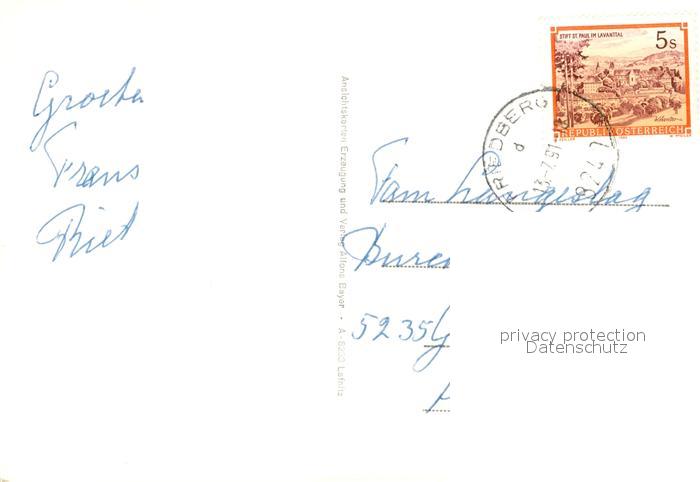 Groeten
Frans
Riet
Ansichtskarten Erzeugung und Verlag Alfons Bayer · A-8233 Lafnitz
STIFT ST. PAUL IM LAVANTTAL
5s
REPUBLIK ÖSTERREICH
FRIEDBERG
d
13-7.91
8241
Fam
5235
privacy protection
Datenschutz